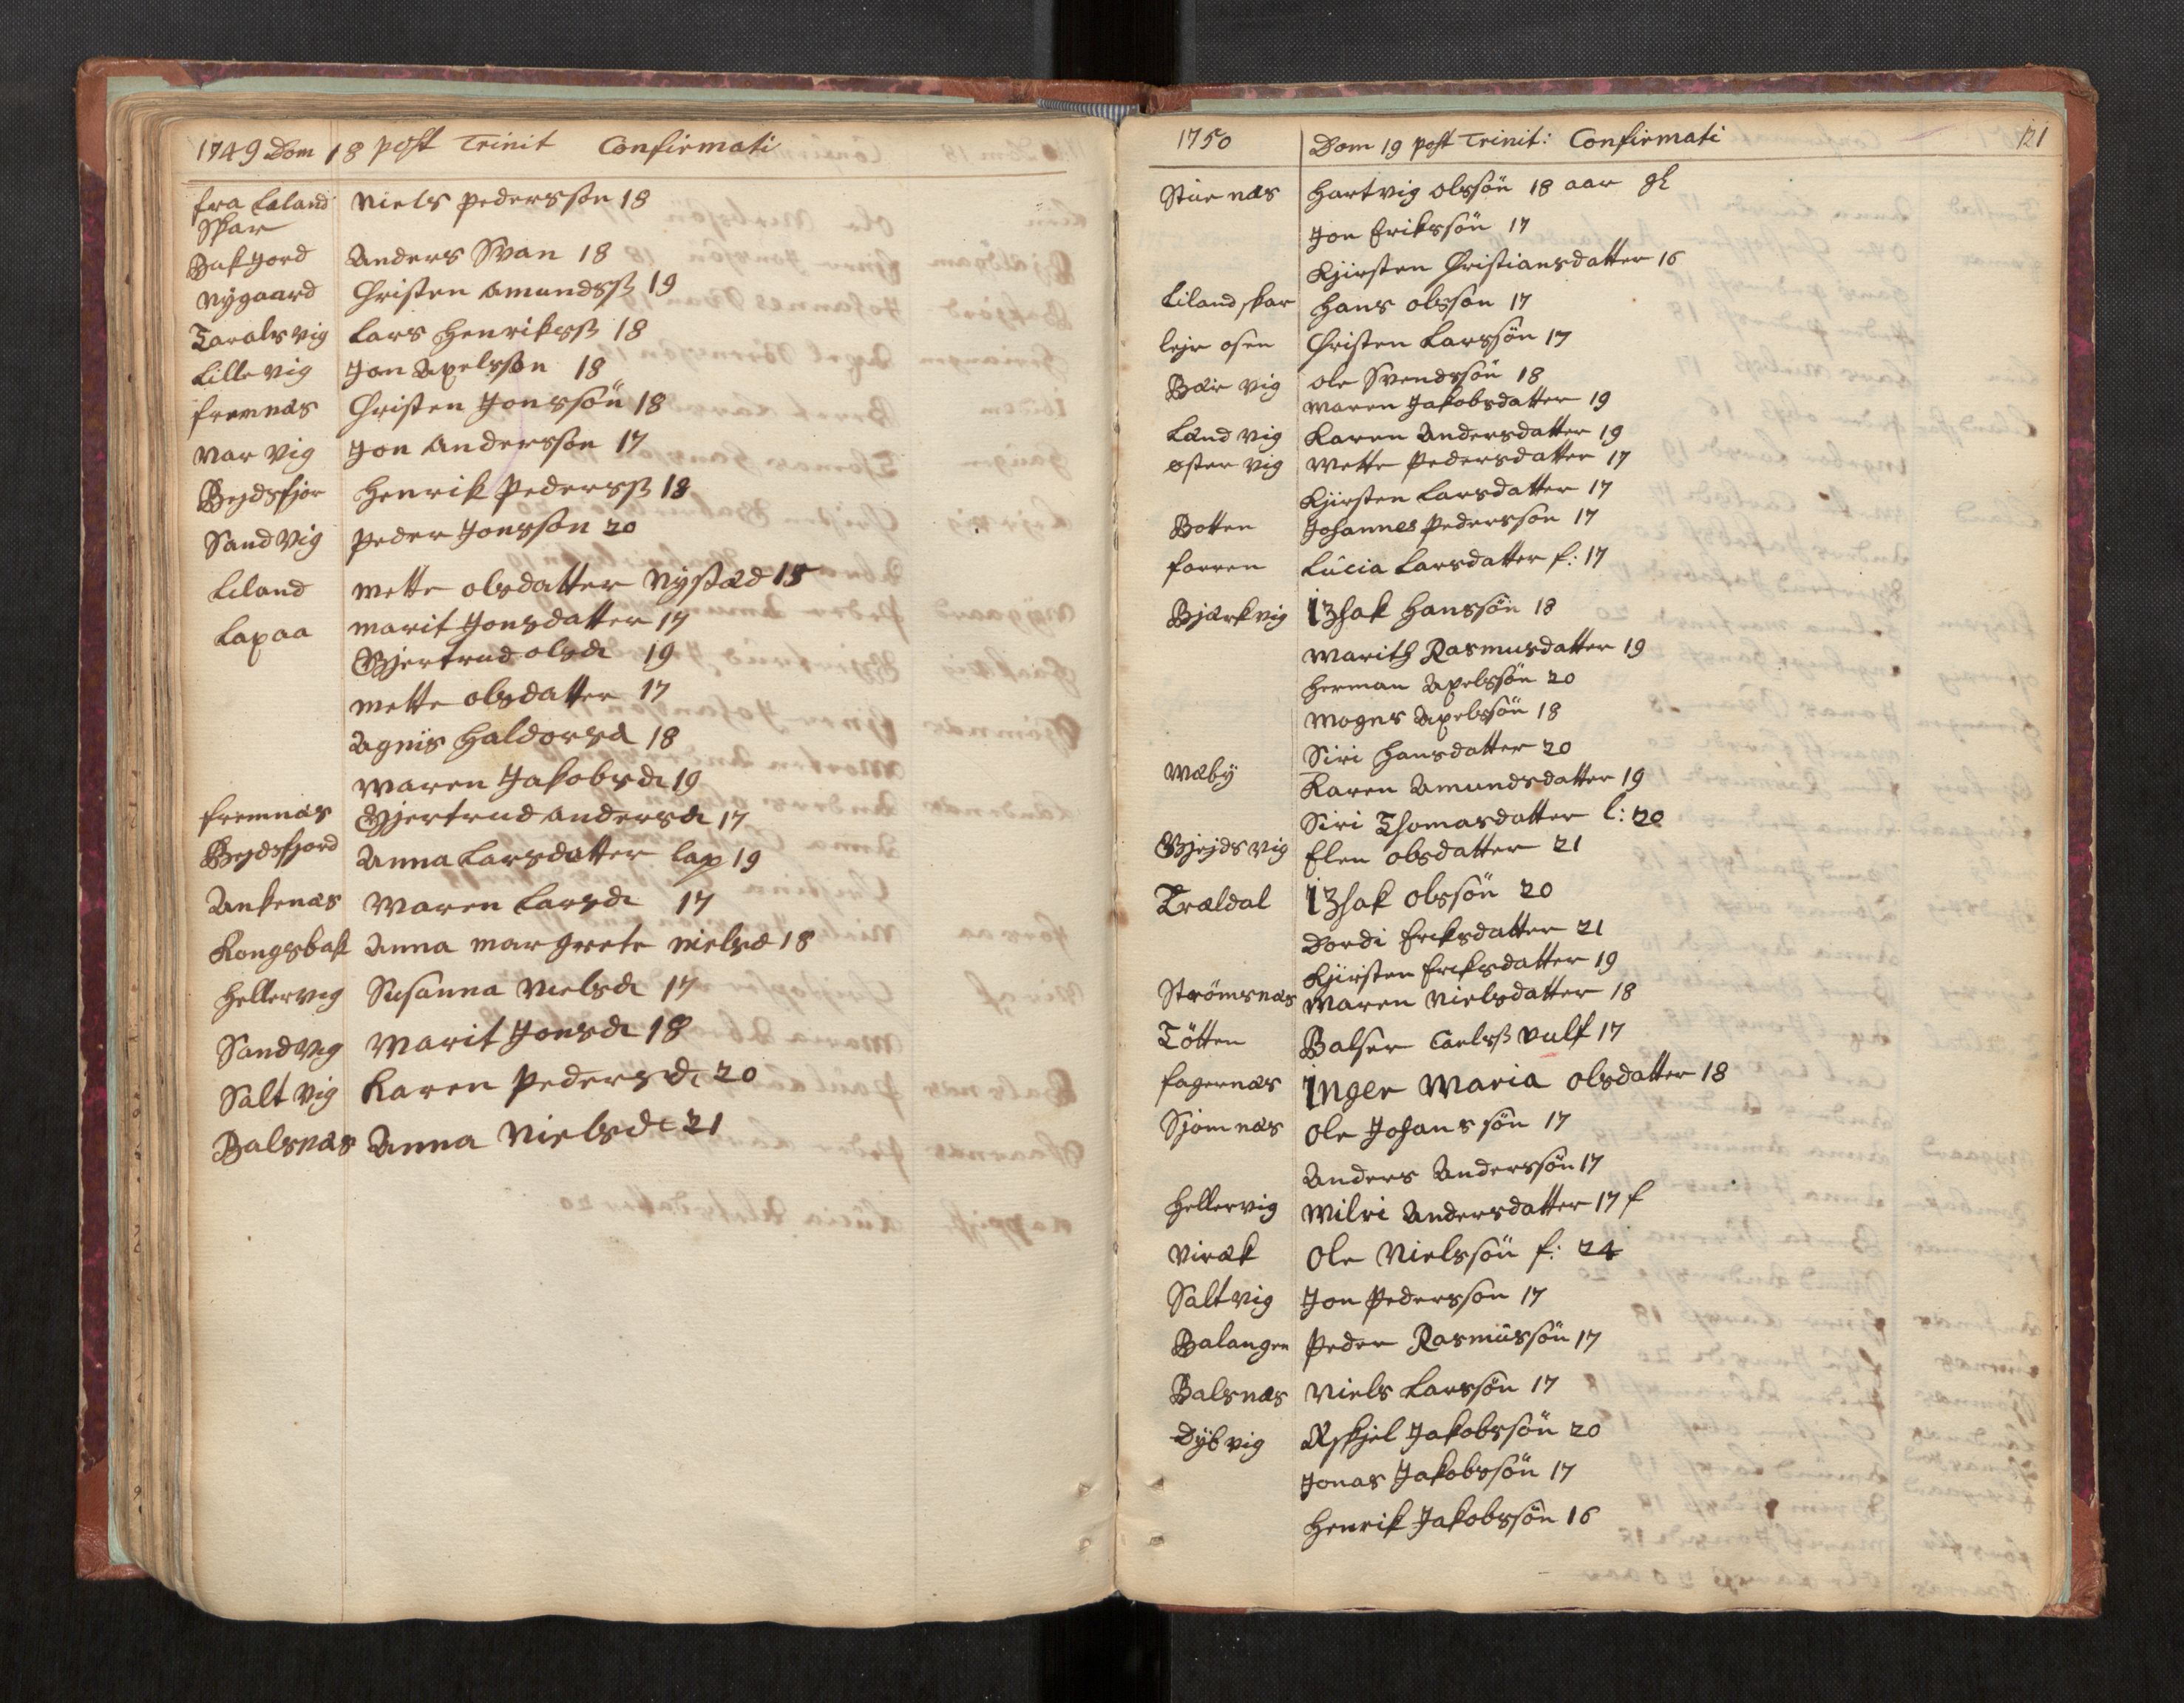 1749 Dom 18 post Trinit Confirmati
fra Leland Niels Pedersson 18
Skar
Bakjord Anders Svan 18
Nÿgaard Christen Amundsß 19
Taralsvig Lars Henriksß 18
Lillevig Jon Axelsson 18
fremnæs Christen Jonssön 18
Narvig Jon Andersson 17
Bejdsfjor Henrik Pedersß 18
Sandvig Peder Jonsson 20
Leland Mette olsdatter Nÿstæd 18
Lapaa Marit Jonsdatter 17
Gjertrud olsd 19
Mette olsdatter 17
Agnis Haldorsd 18
Maren Jakobsd 19
fremnæs Gjertrud Andersd 17
Bejdsfjord Anna Larsdatter lap 19
Ankenæs Maren Larsd 17
Kongsbak Anna Margrete Nielsd 18
Hellervig Susanna Nielsd 17
Sandvig Marit Jonsd 18
Saltvig Karen Pedersd 20
Balsnæs Anna Nielsd 21
1750 Dom 19 post Trinit: Confirmati 121
Stuenæs Hartvig olssön 18 aar gl
Jon Erikssön 17
Kjirsten Christiansdatter 16
Lilandskar Hans olsson 17
lejrosen Christen Larssön 17
Bærvig ole Svendssön 18
Maren Jakobsdatter 19
Landvig Karen Andersdatter 19
østervig Mette Pedersdatter 17
Kjirsten Larsdatter 17
Botten Johannes Pedersson 17
forren Lucia Larsdatter f: 17
Bjærkvig Izhak Hanssön 18
Marith Rasmusdatter 19
Herman Axelssön 20
Mogns Axelssön 18
Siri Hansdatter 20
Mæbÿ Karen Amundsdatter 19
Siri Thomasdatter l: 20
Gjejdsvig Elen olsdatter 21
Trældal Izhak olssön 20
Dordi Eriksdatter 21
Kjirsten Eriksdatter 19
Strömsnæs Maren Nielsdatter 18
Tötten Balser Carlsß Vulf 17
fagernæs Inger Maria olsdatter 18
Sjomnæs Ole Johanssön 17
Anders Anderssön 17
Hellervig Milri Andersdatter 17 f
Viræk Ole Nielssön f: 24
Saltvig Jon Pedersson 17
Balangen Peder Rasmussön 17
Balsnæs Niels Larssön 17
Dÿbvig Askjel Jakobssön 20
Jonas Jakobssön 17
Henrik Jakobssön 16